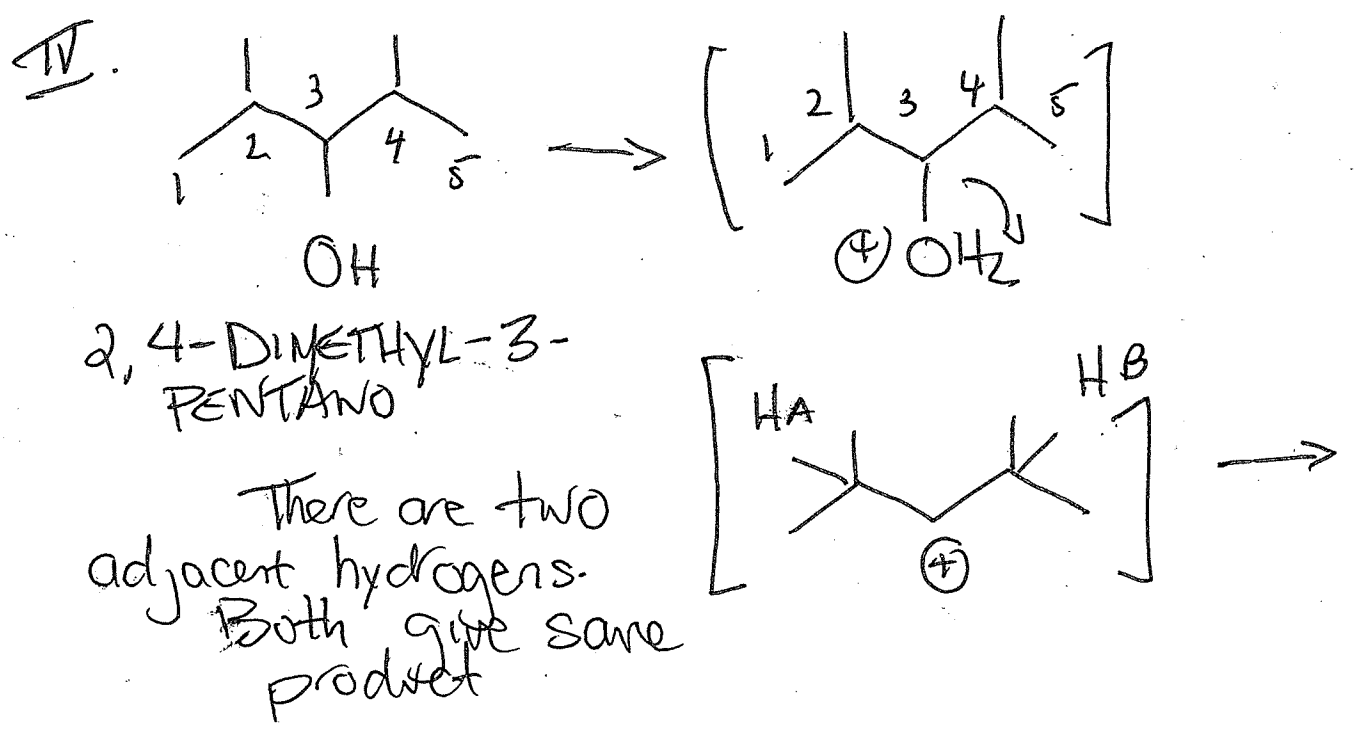 IV.
3
2
4
1
5
OH
2
3
4
5
1
⊕ OH2
2,4-DIMETHYL-3-
PENTANO
HA
HB
⊕
There are two
adjacent hydrogens.
Both give same
product